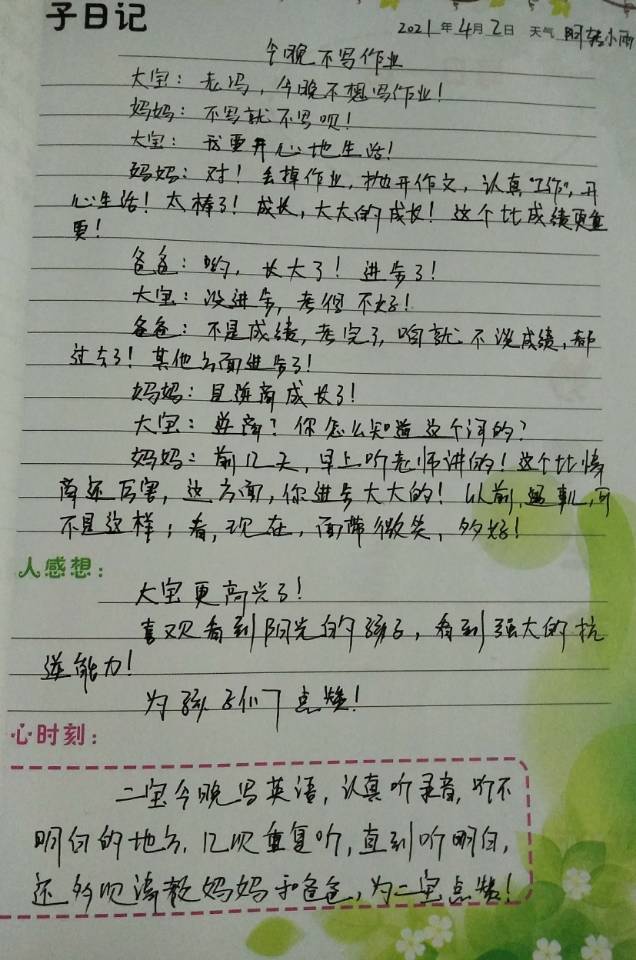 子日记
2021年4月2日 天气 阴转小雨
今晚不写作业
大宝：老冯，今晚不想写作业！
妈妈：不写就不写呗！
大宝：我要开心地生活！
妈妈：对！丢掉作业，抛开作文，认真“工作”，开
心生活！太棒了！成长，大大的成长！这个比成绩更重
要！
爸爸：哟，长大了！进步了！
大宝：没进步，考得不好！
爸爸：不是成绩，考完了，咱就不说成绩，都
过去了！其他方面进步了！
妈妈：是逆商成长了！
大宝：逆商？你怎么知道这个词的？
妈妈：前几天，早上听老师讲的！这个比情
商还厉害，这方面，你进步大大的！以前，遇事儿，可
不是这样；看，现在，面带微笑，多好！
人感想：
大宝更高兴了！
喜欢看到阳光的孩子，看到强大的抗
逆能力！
为孩子们点赞！
心时刻：
二宝今晚写英语，认真听录音，听不
明白的地方，几次重复听，直到听明白，
还多次请教妈妈和爸爸，为二宝点赞！